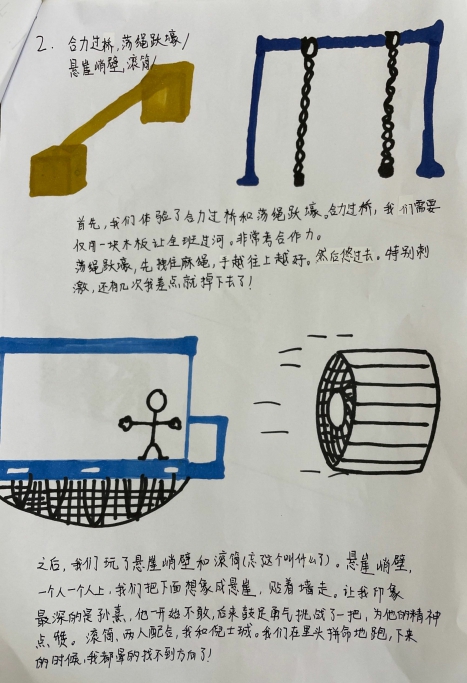 2. 合力过桥,荡绳跃壕/
悬崖峭壁,滚筒/
首先,我们体验了合力过桥和荡绳跃壕。合力过桥,我们需要
仅用一块木板让全班过河。非常考合作力。
荡绳跃壕,先拽住麻绳,手越往上越好。然后悠过去。特别刺
激,还有几次我差点就掉下去了!
之后,我们玩了悬崖峭壁和滚筒(忘了这个叫什么了)。悬崖峭壁,
一个人一个人上,我们把下面想象成悬崖,贴着墙走。让我印象
最深的是孙熹,他一开始不敢,后来鼓足勇气挑战了一把,为他的精神
点赞。滚筒,两人配合,我和倪士珹。我们在里头拼命地跑,下来
的时候,我都晕的找不到方向了!